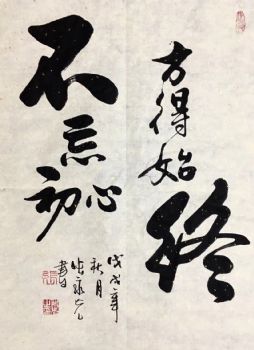 不忘初心
方得始終
戊戌年
秋月
書